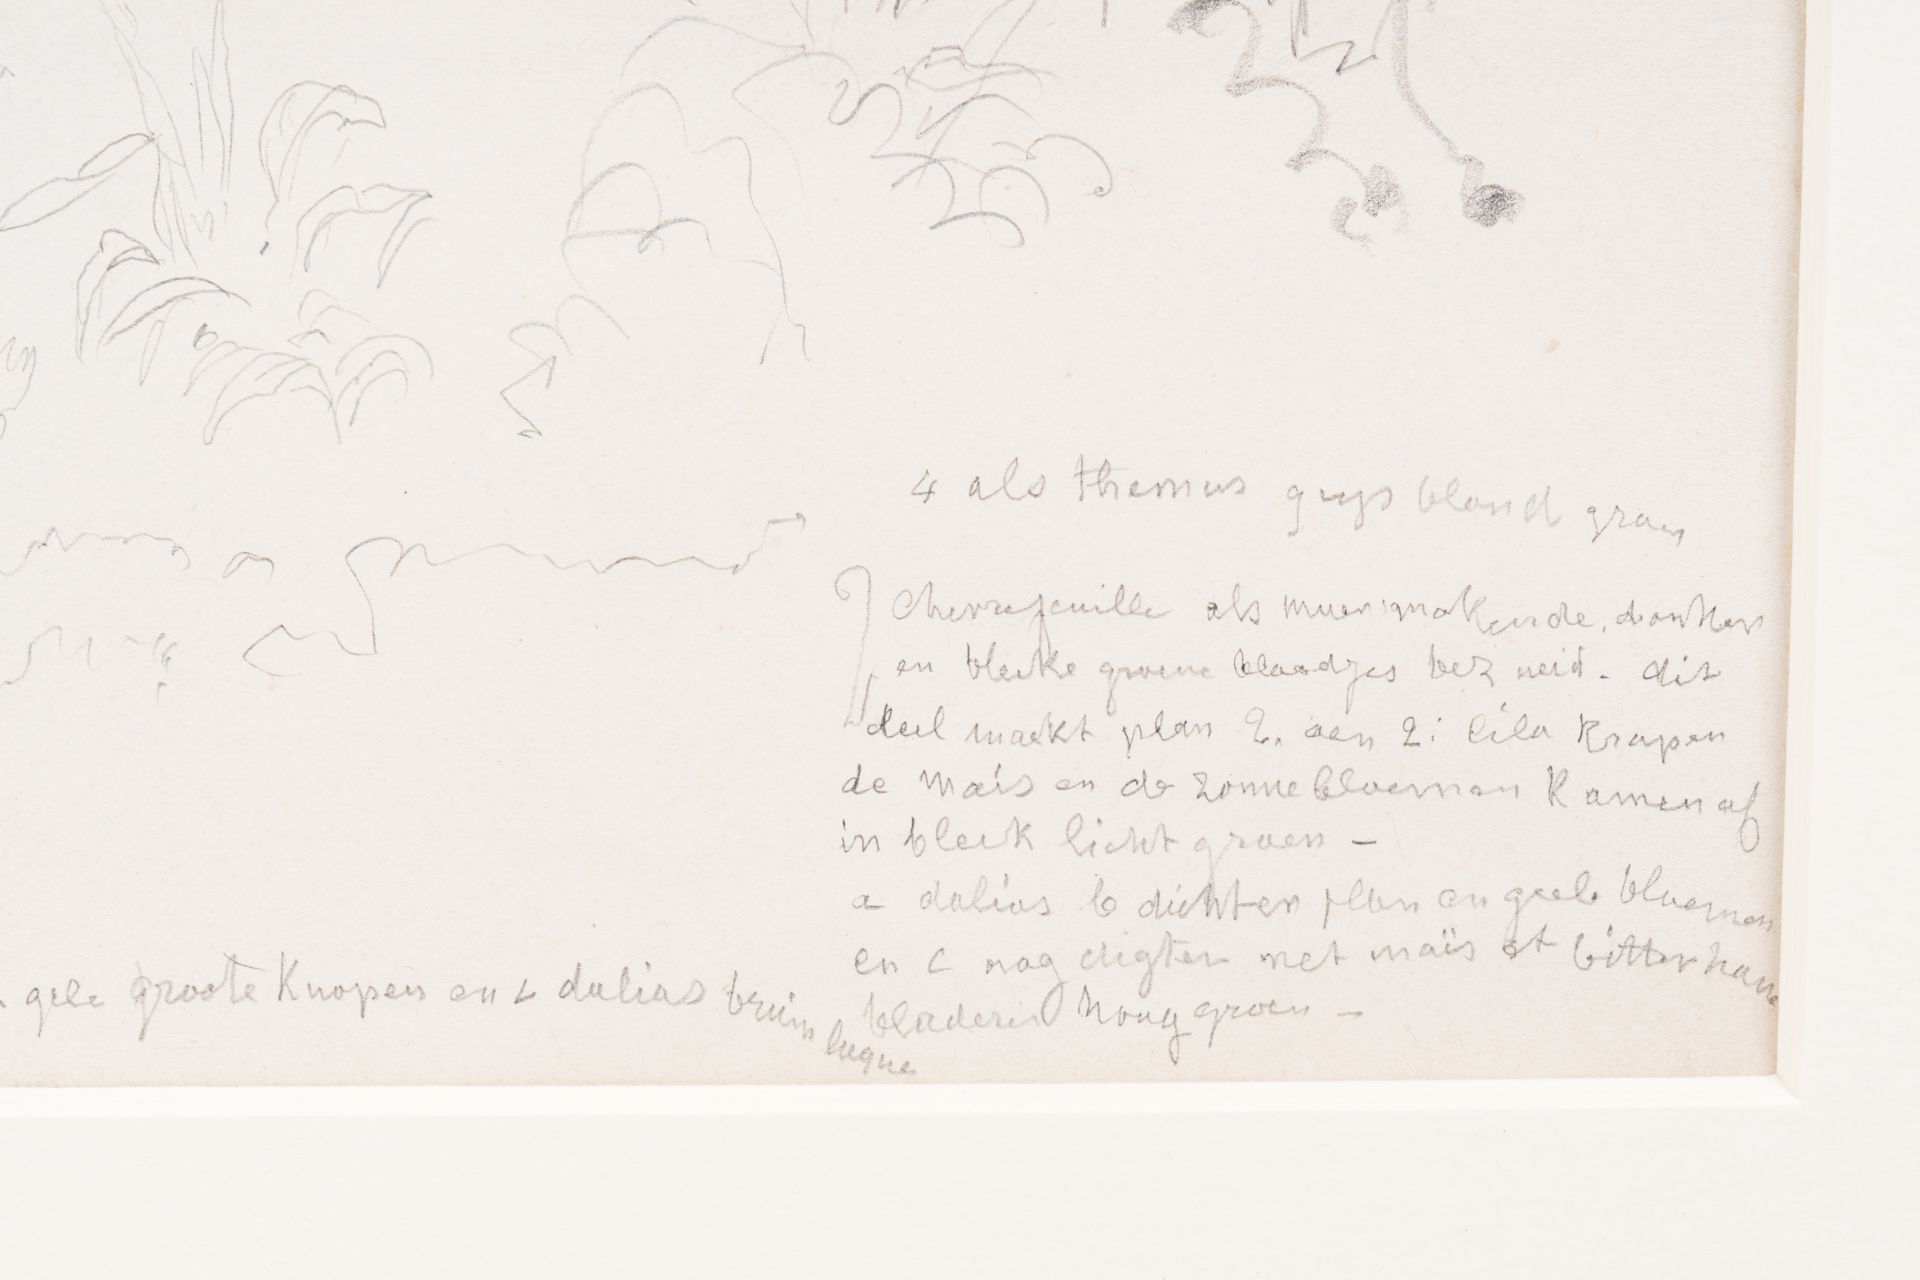 4 als themus grys blond groen
chevrefeuille als muur makende, donker
en bleeke groene blaadjes bez neid - dit
deel maekt plan 2. aen 2: lila Krapen
de maïs en de zonnebloemen Kamen af
in bleek licht groen -
a dalias b dichter plan en geele bloemen
en c nog digter met maïs et bitter
bladeren hoog groen -
gele groote Knopen en 2 dalias bruin
laque